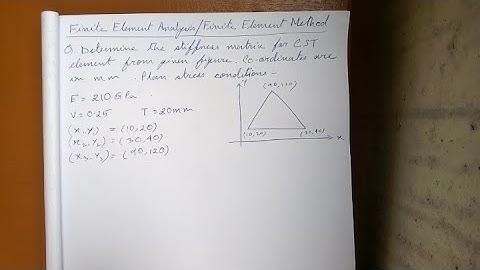 Finite Element Analysis/Finite Element Method
Q. Determine the stiffness matrix for CST
element from given figure. Co-ordinates are
in mm. Plane stress conditions -
E = 210 GPa.
V = 0.25 T = 20mm
(x, Y,) = (10,20)
(x₂, Y₂) = (30,40)
(x₃, Y₃) = (90,120)
Y
(90,120)
(10,20)
(30,40)
x